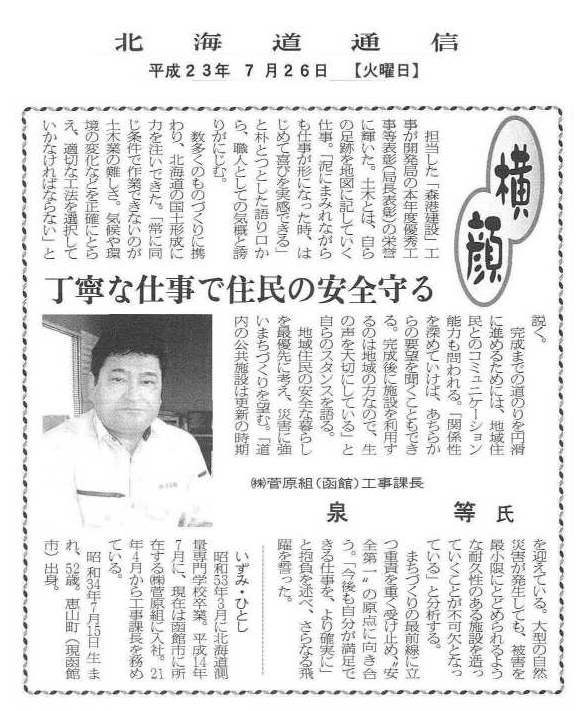 北海道通信
平成23年 7月26日 【火曜日】
横顔
担当した「森港建設」工
事が開発局の本年度優秀工
事等表彰(局長表彰)の栄誉
に輝いた。土木とは、自ら
の足跡を地図に記していく
仕事。「泥にまみれながら
も仕事が形になった時、は
じめて喜びを実感できる」
と朴とつとした語り口か
ら、職人としての気概と誇
りがにじむ。
数多くのものづくりに携
わり、北海道の国土形成に
力を注いできた。「常に同
じ条件で作業できないのが
土木業の難しさ。気候や環
境の変化などを正確にとら
え、適切な工法を選択して
いかなければならない」と
丁寧な仕事で住民の安全守る
説く。
完成までの道のりを円滑
に進めるためには、地域住
民とのコミュニケーション
能力も問われる。「関係性
を深めていけば、あちらか
らの要望を聞くこともでき
る。完成後に施設を利用す
るのは地域の方なので、生
の声を大切にしている」と
自らのスタンスを語る。
地域住民の安全な暮らし
を最優先に考え、災害に強
いまちづくりを望む。「道
内の公共施設は更新の時期
㈱菅原組(函館)工事課長
泉 等氏
を迎えている。大型の自然
災害が発生しても、被害を
最小限にとどめられるよう
な耐久性のある施設を造っ
ていくことが不可欠となっ
ている」と分析する。
まちづくりの最前線に立
つ重責を重く受け止め、〝安
全第一〟の原点に向き合
う。「今後も自分が満足で
きる仕事を、より確実に」
と抱負を述べ、さらなる飛
躍を誓った。
いずみ・ひとし
昭和53年3月に北海道測
量専門学校卒業。平成14年
7月に、現在は函館市に所
在する㈱菅原組に入社。21
年4月から工事課長を務め
ている。
昭和34年7月15日生ま
れ、52歳。恵山町(現函館
市)出身。